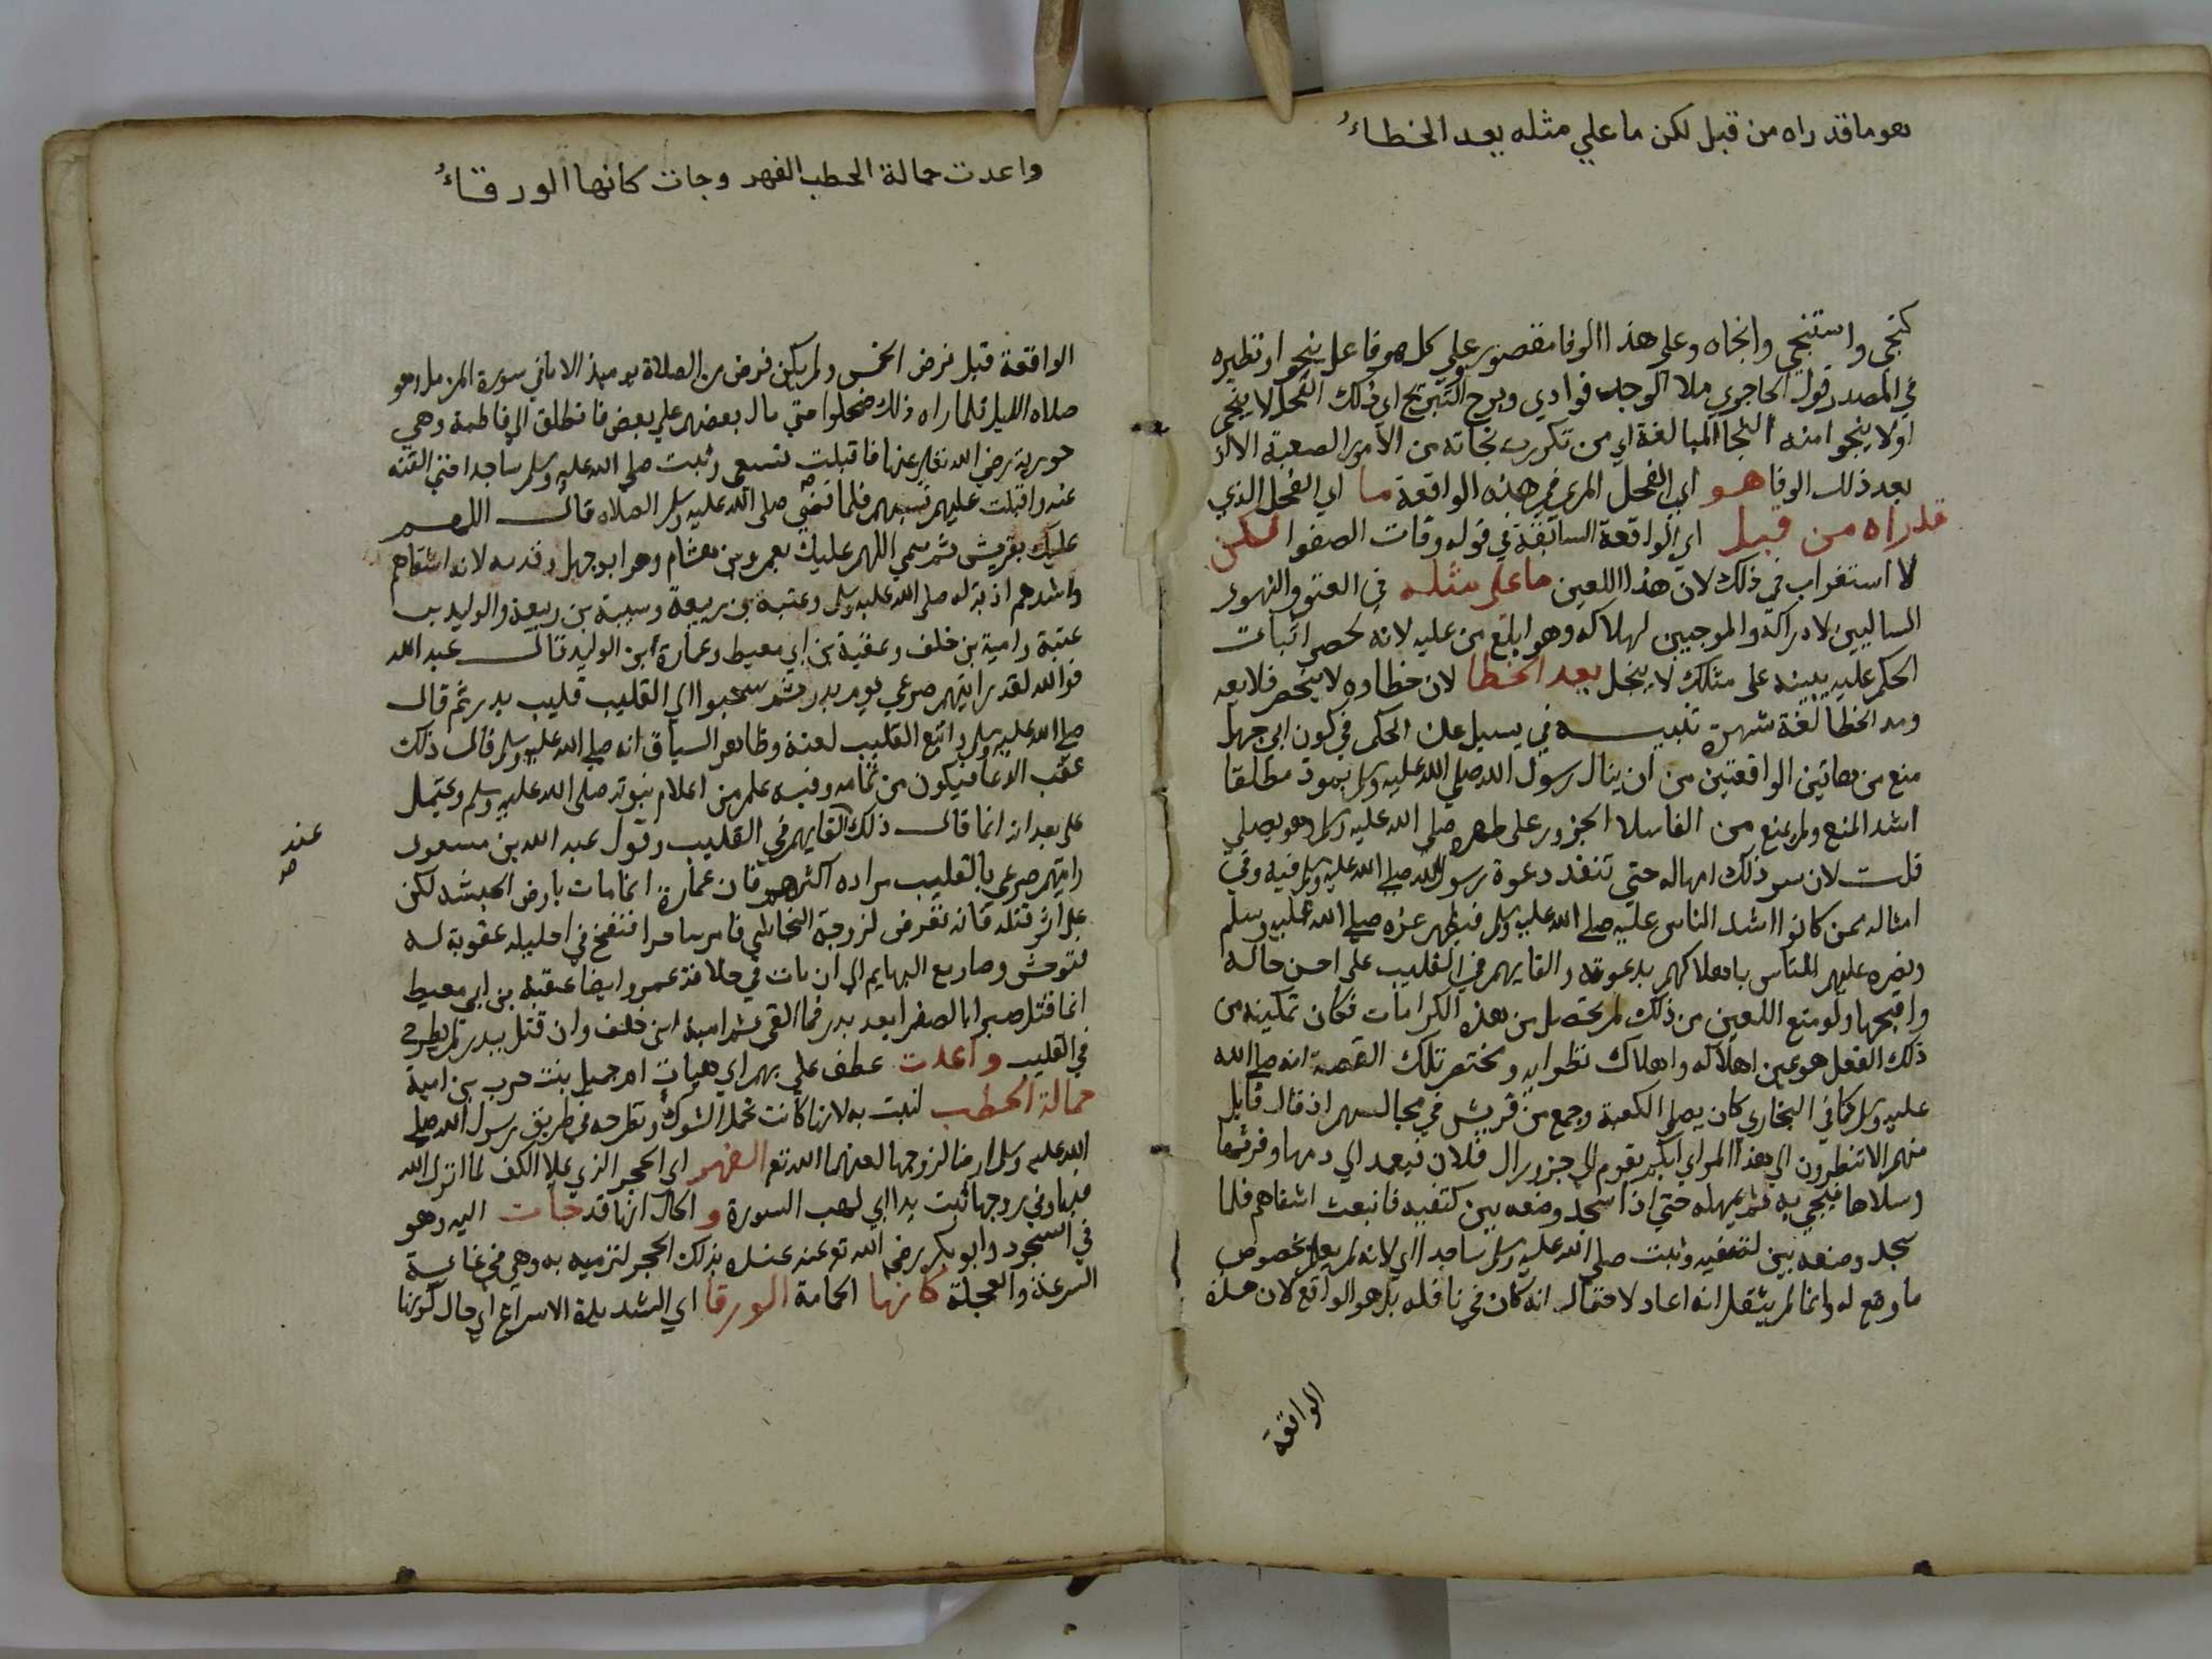 هو ما قد راه من قبل لكن ما علي مثله يعد الخطاءُ
كنجي واستنجي وانجاه وعلي هذا الوفا مقصور علي كل هو فاعل ينجو او نظيره
في المصدر قول الحاجري ملا الوجد فوادي وبرح التبريح اي ذلك الفحل لا ينجي
اولا ينجو امنه النجا المبالغة اي من تكررت نجاته من الامور الصعبة الا اذ
بعد ذلك الوفا هو اي الفحل المري في هذه الواقعة ما اي الفحل الذي
قد راه من قبل اي الواقعة السابقة في قوله وقات الصفوا لكن
لا استغراب في ذلك لان هذا اللعين ما علي مثله في العتو والتهور
السالبين لادراكه والموجبين لهلاكه وهو ابلغ من عليه لانه لحصر اثبات
الحكم عليه ببينه على مثلك لا يبخل يعد الخطا لان خطاوه لا ينحصر فلا يعد
ومد الخطا لغة شهرة تنبيه في يسيل عن الحكم في كون ابي جهل
منع من هاتين الواقعتين من ان ينال رسول الله صلي الله عليه وسلم بسوء مطلقا
اشد المنع ولم يمنع من القا سلا الجزور على ظهره صلي الله عليه وسلم وهو يصلي
قلت لان سر ذلك امهاله حتي تنفذ دعوة رسول الله صلي الله عليه وسلم فيه وفي
امثاله ممن كانوا اشد الناس عليه صلي الله عليه وسلم فيظهر عزه صلي الله عليه وسلم
ونصره عليهم للناس باهلاكهم بدعوته والقايهم في القليب على احسن حاله
واقبحها ولو منع اللعين من ذلك لم يحصل من هذه الكرامات فكان تمكينه من
ذلك الفعل هو عين اهلاكه واهلاك نظرايه ومختصر تلك القصة انه صلي الله
عليه وسلم كما في البخاري كان يصلي الكعبة وجمع من قريش في مجالسهم اذ قال قايل
منهم الا تنظرون الي هذا المراي ايكم يقوم الي جزور ال فلان فيعمد الي دمها وفرثها
وسلاها فيجي به ثم يمهله حتي اذا سجد وضعه بين كتفيه فانبعث اشقاهم فلما
سجد وضعه بين كتفيه وثبت صلي الله عليه وسلم ساجدا اي لانه لم يعلم بخصوص
ما وضع له وانما لم ينقل انه اعاد لاحتمال انه كان في نافله بل هو الواقع لان هذه
الواقعة
واعدت حمالة الحطب الفهر وجات كانها الورقاءُ
الواقعة قبل فرض الخمس ولم يكن فرض من الصلاة يوميذ الا ما في سورة المزمل وهو
صلاه الليل فلما راه ذلك ضحكوا حتي مال بعضهم علي بعض فانطلق الي فاطمة وهي
جويرية رضي الله تعالي عنها فاقبلت تسعي وثبت صلي الله عليه وسلم ساجدا حتي القته
عنه واقبلت عليهم تسبهم فلما قضي صلي الله عليه وسلم الصلاه قال اللهم
عليك بقريش ثم سمي اللهم عليك بعمرو بن هشام وهو ابو جهل وقدمه لانه اشقاهم
واشدهم اذية له صلي الله عليه وسلم وعتبة بن ربيعة وشيبة بن ربيعة والوليد بن
عتبة وامية بن خلف وعقبة بن ابي معيط وعمارة ابن الوليد قال عبد الله
فوالله لقد رايتهم صرعي يوم بدر ثم سحبوا الي القليب قليب بدر ثم قال
صلي الله عليه وسلم واتبع القليب لعنة وظاهر السياق انه صلي الله عليه وسلم قال ذلك
عقب الدعا فيكون من تمامه وفيه علم من اعلام نبوته صلي الله عليه وسلم ويحتمل
على بعد انه انما قال ذلك القايهم في القليب وقول عبد الله بن مسعود
عند
رايتهم صرعي بالقليب مراده اكثرهم فان عمارة انما مات بارض الحبشة لكن
على اثر قتله فانه تعرض لزوجة النجاشي فامر ساحرا فنفخ في احليله عقوبة له
فتوحش وصار مع البهايم الي ان مات في خلافة عمر وايضا عقبة بن ابي معيط
انما قتل صبرا بالصفرا بعد بدر فما القي ثم امية ابن خلف وان قتل ببدر لم يطرح
في القليب واعدت عطف علي بهم اي هيات ام جميل بنت حرب بن امية
حمالة الحطب لقبت به لانها كانت تحمل الشوك وتطرحه في طريق رسول الله صلي
الله عليه وسلم ارضا لزوجها لعنهما الله تع الفهر اي الحجر الذي يملا الكف لما انزل الله
فيها وفي زوجها تبت يدا ابي لهب السورة و الحال انها قد جات اليه وهو
في السجود وابو بكر رضي الله تع عنه عنده بذلك الحجر لترميه به وهي في غاية
السرعة والعجلة كانها الحمامة الورقا اي الشديدة الاسراع اي حال كونها